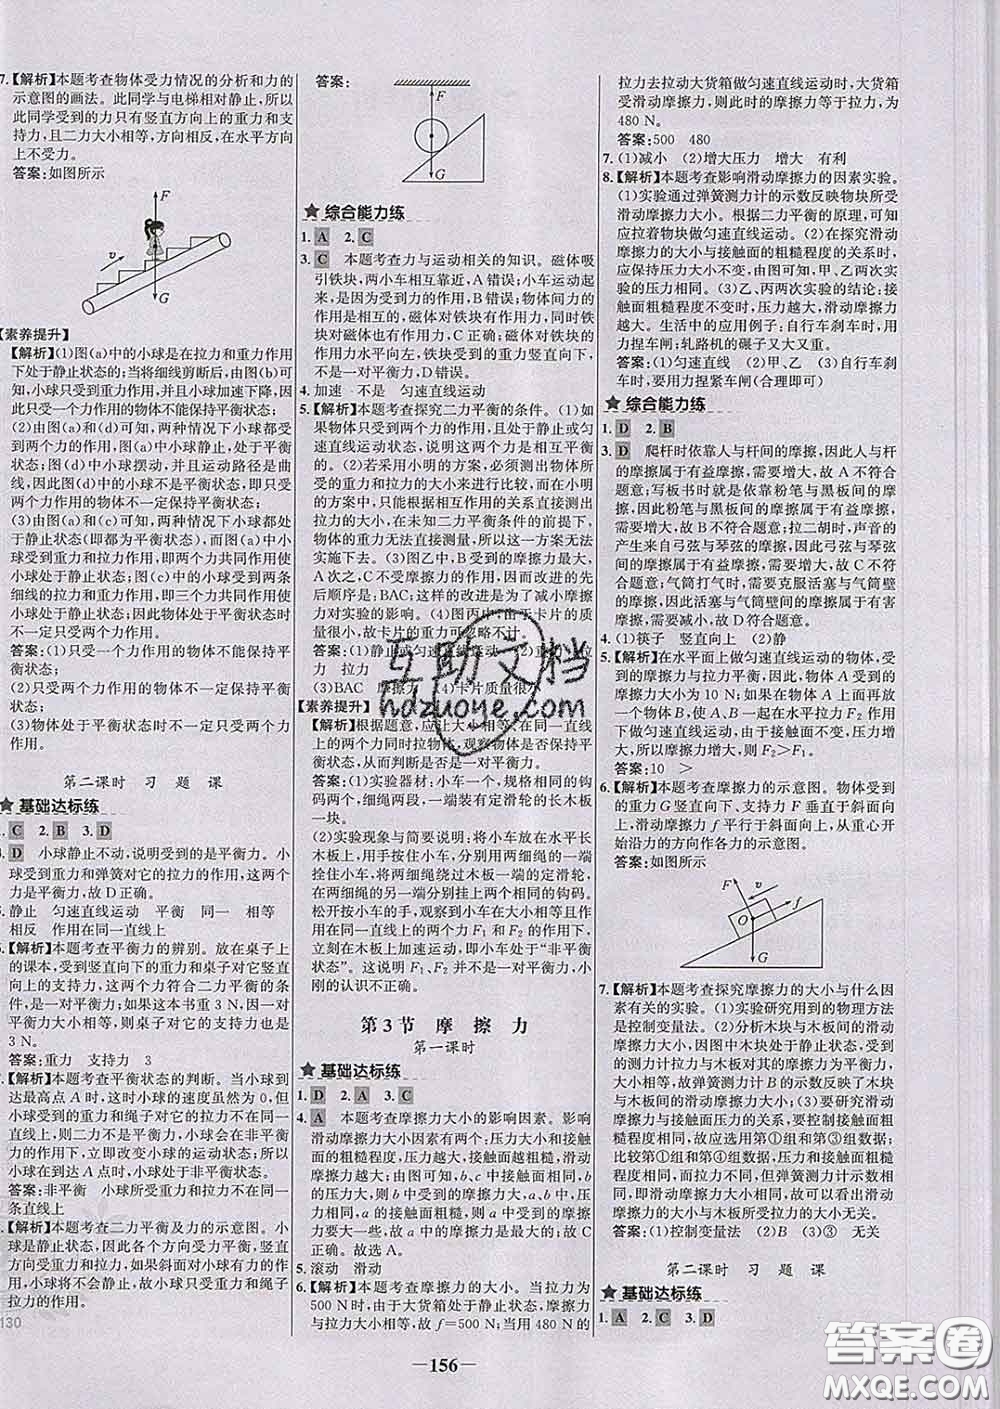 7.【解析】本题考查物体受力情况的分析和力的
示意图的画法。此同学与电梯相对静止，所以
此同学受到的力只有竖直方向上的重力和支
持力，且二力大小相等，方向相反，在水平方向
上不受力。
答案：如图所示
F
v
G
【素养提升】
【解析】(1)图(a)中的小球是在拉力和重力作用
下处于静止状态的；当将细线剪断后，由图(b)可
知，小球只受到重力作用，并且小球加速下降，因
此只受一个力作用的物体不能保持平衡状态；
(2)由图(a)可知，在两种情况下小球都受
到两个力的作用，图(a)中小球静止，处于平衡
状态；图(a)中小球摆动，并且运动路径是曲
线，小球处于非平衡状态，即只受两个力
作用的物体不一定保持平衡状态；
(3)由图(a)和(c)可知，两种情况下小球都处
于静止状态(即都为平衡状态)，而图(a)中的
小球受到重力和拉力，即两个力共同作用使
小球处于静止状态；图(c)中的小球受到两条
细线的拉力和重力作用，即三个力共同作用使
小球处于静止状态；因此物体处于平衡状态时
不一定只受两个力作用。
答案：(1)只受一个力作用的物体不能保持平
衡状态；
(2)只受两个力作用的物体不一定保持平衡
状态；
(3)物体处于平衡状态时不一定只受两个力
作用。
第二课时 习题课
基础达标练
1. C 2. B 3. D
4. D 小球静止不动，说明受到的是平衡力。小
球受到重力和弹簧对它的拉力的作用，这两个
力是平衡力，故D正确。
5. 静止 匀速直线运动 平衡 同一 相等
相反 作用在同一直线上
6.【解析】本题考查平衡力的辨别。放在桌子上
的课本，受到竖直向下的重力和桌子对它竖直
向上的支持力，这两个力符合二力平衡的条
件，是一对平衡力；如果这本书重3 N，因一对
平衡力大小相等，则桌子对它的支持力也为
3 N。
答案：重力 支持力 3
7.【解析】本题考查平衡状态的判断。当小球达
到最高点A时，这时小球的速度虽然为0，但
小球受到的重力和绳子对它的拉力不在同一
直线上，则二力不是平衡力，小球会在非平衡
力的作用下，立即改变小球的运动状态，所以
小球在到达A点时，小球处于非平衡状态。
答案：非平衡 小球所受重力和拉力不在同一
条直线上
8.【解析】本题考查二力平衡及力的示意图。小
球是静止状态，因此各个方向受力平衡，竖直
方向受重力和拉力，而水平方向如果受力，则
只能受到斜面对小球有力的作用，这样的话，
小球将不会静止，故小球只受重力和绳子
拉力的作用。
130
答案：
F
G
综合能力练
1. A 2. C
3. C 本题考查力与运动相关的知识。磁体吸
引铁块时，两小车相互靠近，A错误；小车运动起
来，是受到力的作用，B错误；物体间力的
作用是相互的，磁体对铁块有作用力，同时铁
块对磁体也有作用力，C正确；磁体对铁块的
作用力水平向左，铁块受到的重力竖直向下，
不是一对平衡力，D错误。
4. 加速 不是 匀速直线运动
5.【解析】本题考查探究二力平衡的条件。(1)如
果物体只受到两个力的作用，且处于静止或匀
速直线运动状态，说明这两个力是相互平衡
的。(2)若采用小明的方案，必须测出物体所
受的重力和拉力的大小来进行比较，而在小明
的方案中，是根据相互作用的关系直接测出
拉力的大小，在未知二力平衡条件的前提下，
物体的重力无法直接测量，所以这一方案无法
实施下去。(3)图乙中，B受到的摩擦力最大，
A次之，C不受摩擦力的作用，因而改进的先
后顺序是：BAC；这样的改进是为了减小摩擦
力对实验的影响。(4)图丙中，由于卡片的质量很
小，故卡片的重力可忽略不计。
答案：(1)静止或匀速直线运动 (2)重力
拉力
(3)BAC 摩擦力 (4)卡片质量很小
【素养提升】
【解析】根据题意，应让大小相等、在同一直线上
的两个力同时拉物体，观察物体是否保持平衡状
态，从而判断是否是一对平衡力。
答案：(1)实验器材：小车一个，规格相同的钩
码两个，细绳两段，一端装有定滑轮的长木板
一块。
(2)实验现象与简要说明：将小车放在水平长
木板上，先用手按住小车，将两细绳的一端系
在小车的两端，让两细绳跨过木板一端的定滑轮，
在两细绳的另一端分别挂上两个相同的钩码，
松开按小车的手，观察到小车在大小相等、方
向相同、作用在同一直线上的两个力作用下，
立刻在木板上加速运动，即小车处于“非平衡
状态”。这说明F₁和F₂不是一对平衡力，小
刚的认识不正确。
第3节 摩擦力
第一课时
基础达标练
1. D 2. A 3. C
4. A 本题考查摩擦力大小的影响因素。影响
滑动摩擦力大小因素有两个：压力大小和接触
面的粗糙程度，压力越大，接触面越粗糙，滑动
摩擦力越大；由图可知，b、c中接触面相同，b
的压力大，则b中受到的摩擦力大；a、b中压力
大小相同，b的接触面粗糙，则b中受到的摩擦
力要大一些，故a中的摩擦力大于c；故C
正确。故选A。
5. 滚动 滑动
6.【解析】本题考查摩擦力的大小。当拉力为
500 N时，由于大货箱处于静止状态，则此时摩
擦力等于拉力，故f=500 N；当用480 N的
—156—
拉力去拉动大货箱做匀速直线运动时，大货箱
受滑动摩擦力，则此时的摩擦力等于拉力，为
480 N。
答案：500 480
7. (1)减小 (2)增大压力 增大 有利
8.【解析】本题考查影响滑动摩擦力的因素实验。
(1)实验通过弹簧测力计的示数反映物块所受
滑动摩擦力大小。根据二力平衡的原理，可知
应拉着物块做匀速直线运动。(2)在探究滑动
摩擦力的大小与接触面的粗糙程度的关系时，
应保持压力大小不变，由图可知，甲、乙两次实
验符合。(3)乙、丙两次实验可得出结论：接触
面粗糙程度不变时，压力越大，滑动摩擦力越
大。生活中的应用例子：自行车刹车时，用力
捏车闸；轧路机的碾子又大又重。
答案：(1)匀速直线 (2)甲、乙 (3)自行车刹
车时，要用力捏紧车闸(合理即可)
综合能力练
1. D 2. B
3. D 爬杆时依靠人与杆间的摩擦，因此人与杆
的摩擦属于有益摩擦，需要增大，故A不符合
题意；写板书时就是依靠粉笔与黑板间的摩
擦，因此粉笔与黑板间的摩擦属于有益摩擦，
需要增大，故B不符合题意；拉二胡时，声音的
产生来自弓弦与琴弦的摩擦，因此弓弦与琴弦
间的摩擦属于有益摩擦，需要增大，故C不符
合题意；气筒打气时，需要克服活塞与气筒壁
的摩擦，故活塞与气筒壁间的摩擦属于有害
摩擦，需要减小，故D符合题意。
4. (1)筷子 竖直向上 (2)静
5.【解析】在水平面上做匀速直线运动的物体，受
到的拉力与摩擦力平衡，因此物体A受到的摩
擦力大小为10 N；如果在物体A上面再放
一个物体B，A、B一起在水平拉力F₂作用下
做匀速直线运动，由于压力增大，故摩擦力增
大，所以拉力增大，则F₂>F₁。
答案：10 >
6.【解析】本题考查摩擦力的示意图。物体受到
的重力G竖直向下、支持力F垂直于斜面向
上，滑动摩擦力f平行于斜面向上，从重心开
始沿力的方向作各力的示意图。
答案：如图所示
F
v
f
O
G
7.【解析】本题考查探究摩擦力的大小与什么因
素有关的实验。(1)实验研究用到的物理方法
是控制变量法。(2)分析木块与木板间的滑动
摩擦力大小时，木块做匀速直线运动，弹簧测
力计拉力与木板对其的摩擦力为平衡力，大小
相同，故弹簧测力计的示数反映了木块与木板
间的滑动摩擦力大小；(3)要研究滑动摩擦力
大小与接触面受到压力的关系，要控制接触面粗
糙程度相同，故应选用第①组和第③组数据；
比较第①组和第④组数据，木板的接触面积不
同，压力相同，而两种情况弹簧测力计示数相
同，所以滑动摩擦力的大小与接触面积无关，
滑动摩擦力的大小与木板所受拉力的大小无关。
答案：(1)控制变量法 (2)B (3)③ 无关
第二课时 习题课
基础达标练
1. A 2. C 3. D
互助文档
hdzuoye.com
答案圈
MXQE.COM